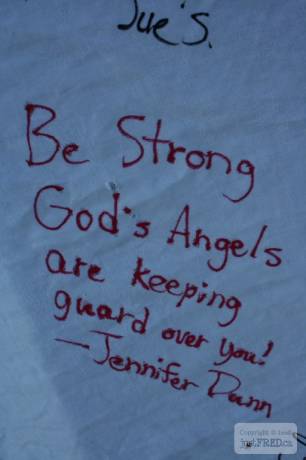 Sue's.
Be Strong
God's Angels
are keeping
guard over you!
—Jennifer Dunn
justFRED.ca